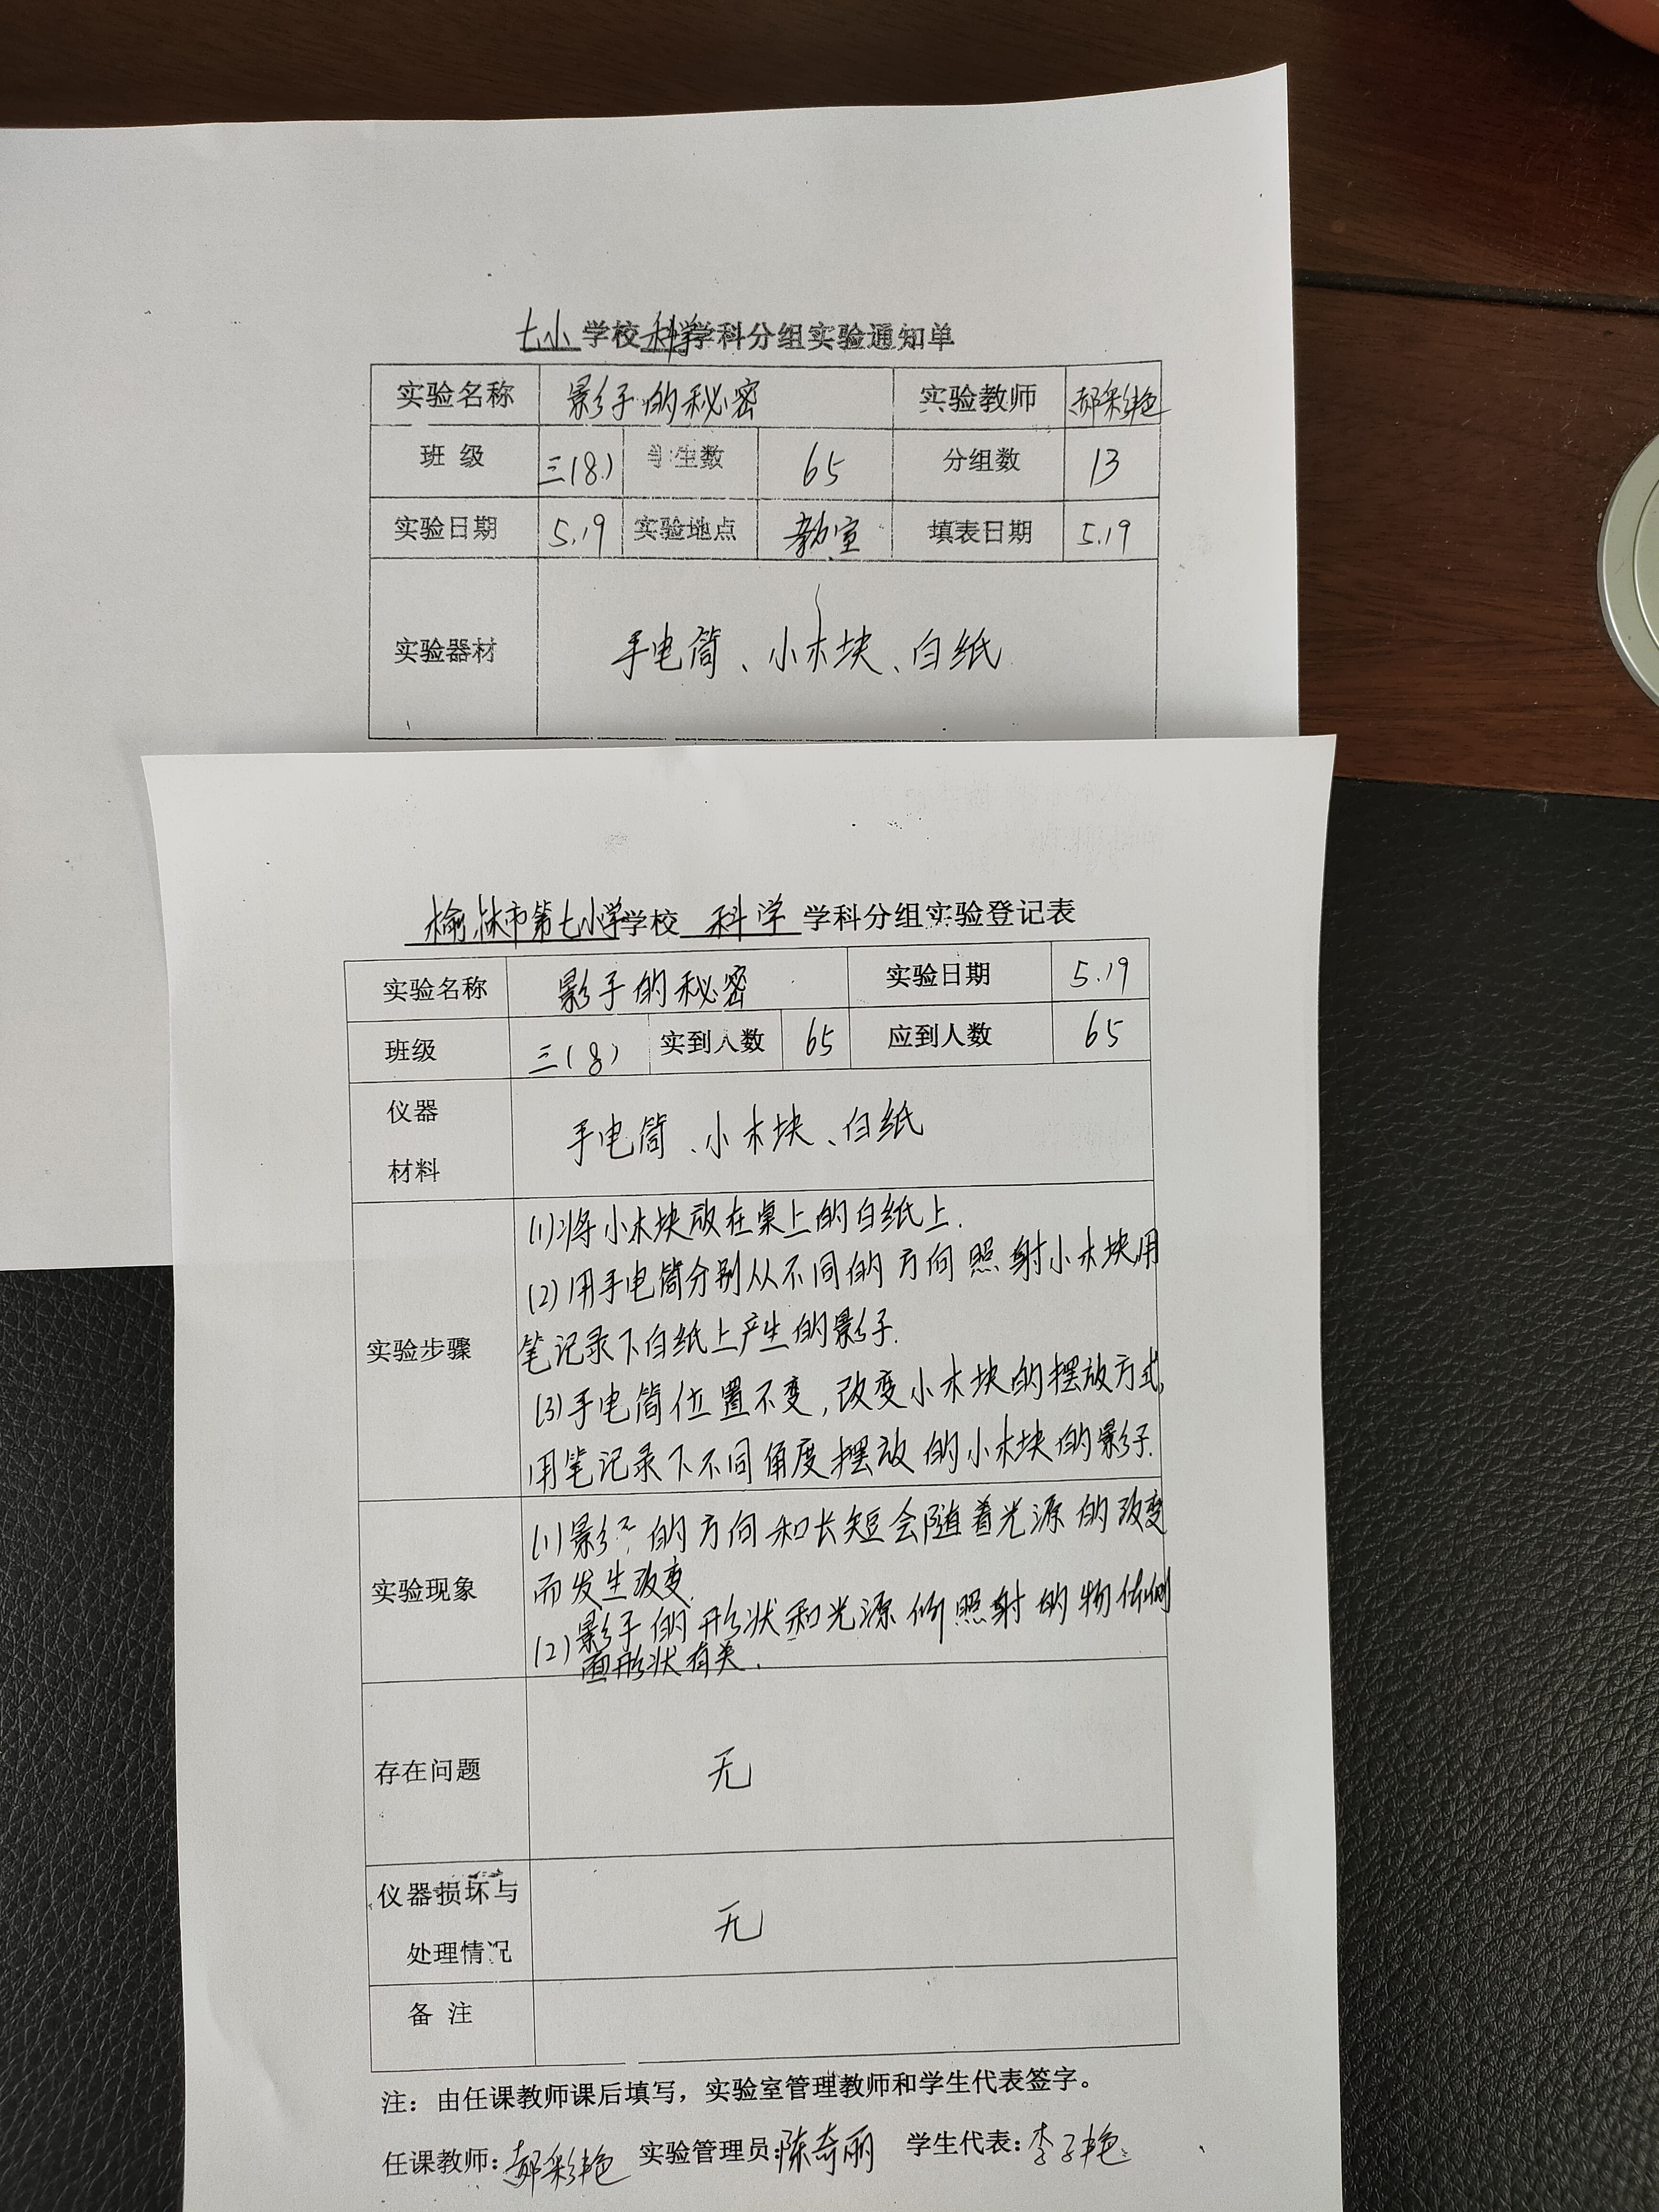 七小学校科学学科分组实验通知单
实验名称 影子的秘密 实验教师 郝彩艳
班 级 三(8) 学生数 65 分组数 13
实验日期 5.19 实验地点 教室 填表日期 5.19
实验器材 手电筒、小木块、白纸
榆林市第七小学学校 科学 学科分组实验登记表
实验名称 影子的秘密 实验日期 5.19
班级 三(8) 实到人数 65 应到人数 65
仪器
材料
手电筒、小木块、白纸
实验步骤
(1)将小木块放在桌上的白纸上.
(2)用手电筒分别从不同的方向照射小木块用
笔记录下白纸上产生的影子.
(3)手电筒位置不变,改变小木块的摆放方式,
用笔记录下不同角度摆放的小木块的影子.
实验现象
(1)影子的方向和长短会随着光源的改变
而发生改变.
(2)影子的形状和光源所照射的物体侧
面形状有关.
存在问题 无
仪器损坏与
处理情况
无
备 注
注：由任课教师课后填写，实验室管理教师和学生代表签字。
任课教师:郝彩艳 实验管理员:陈奇丽 学生代表:李子艳